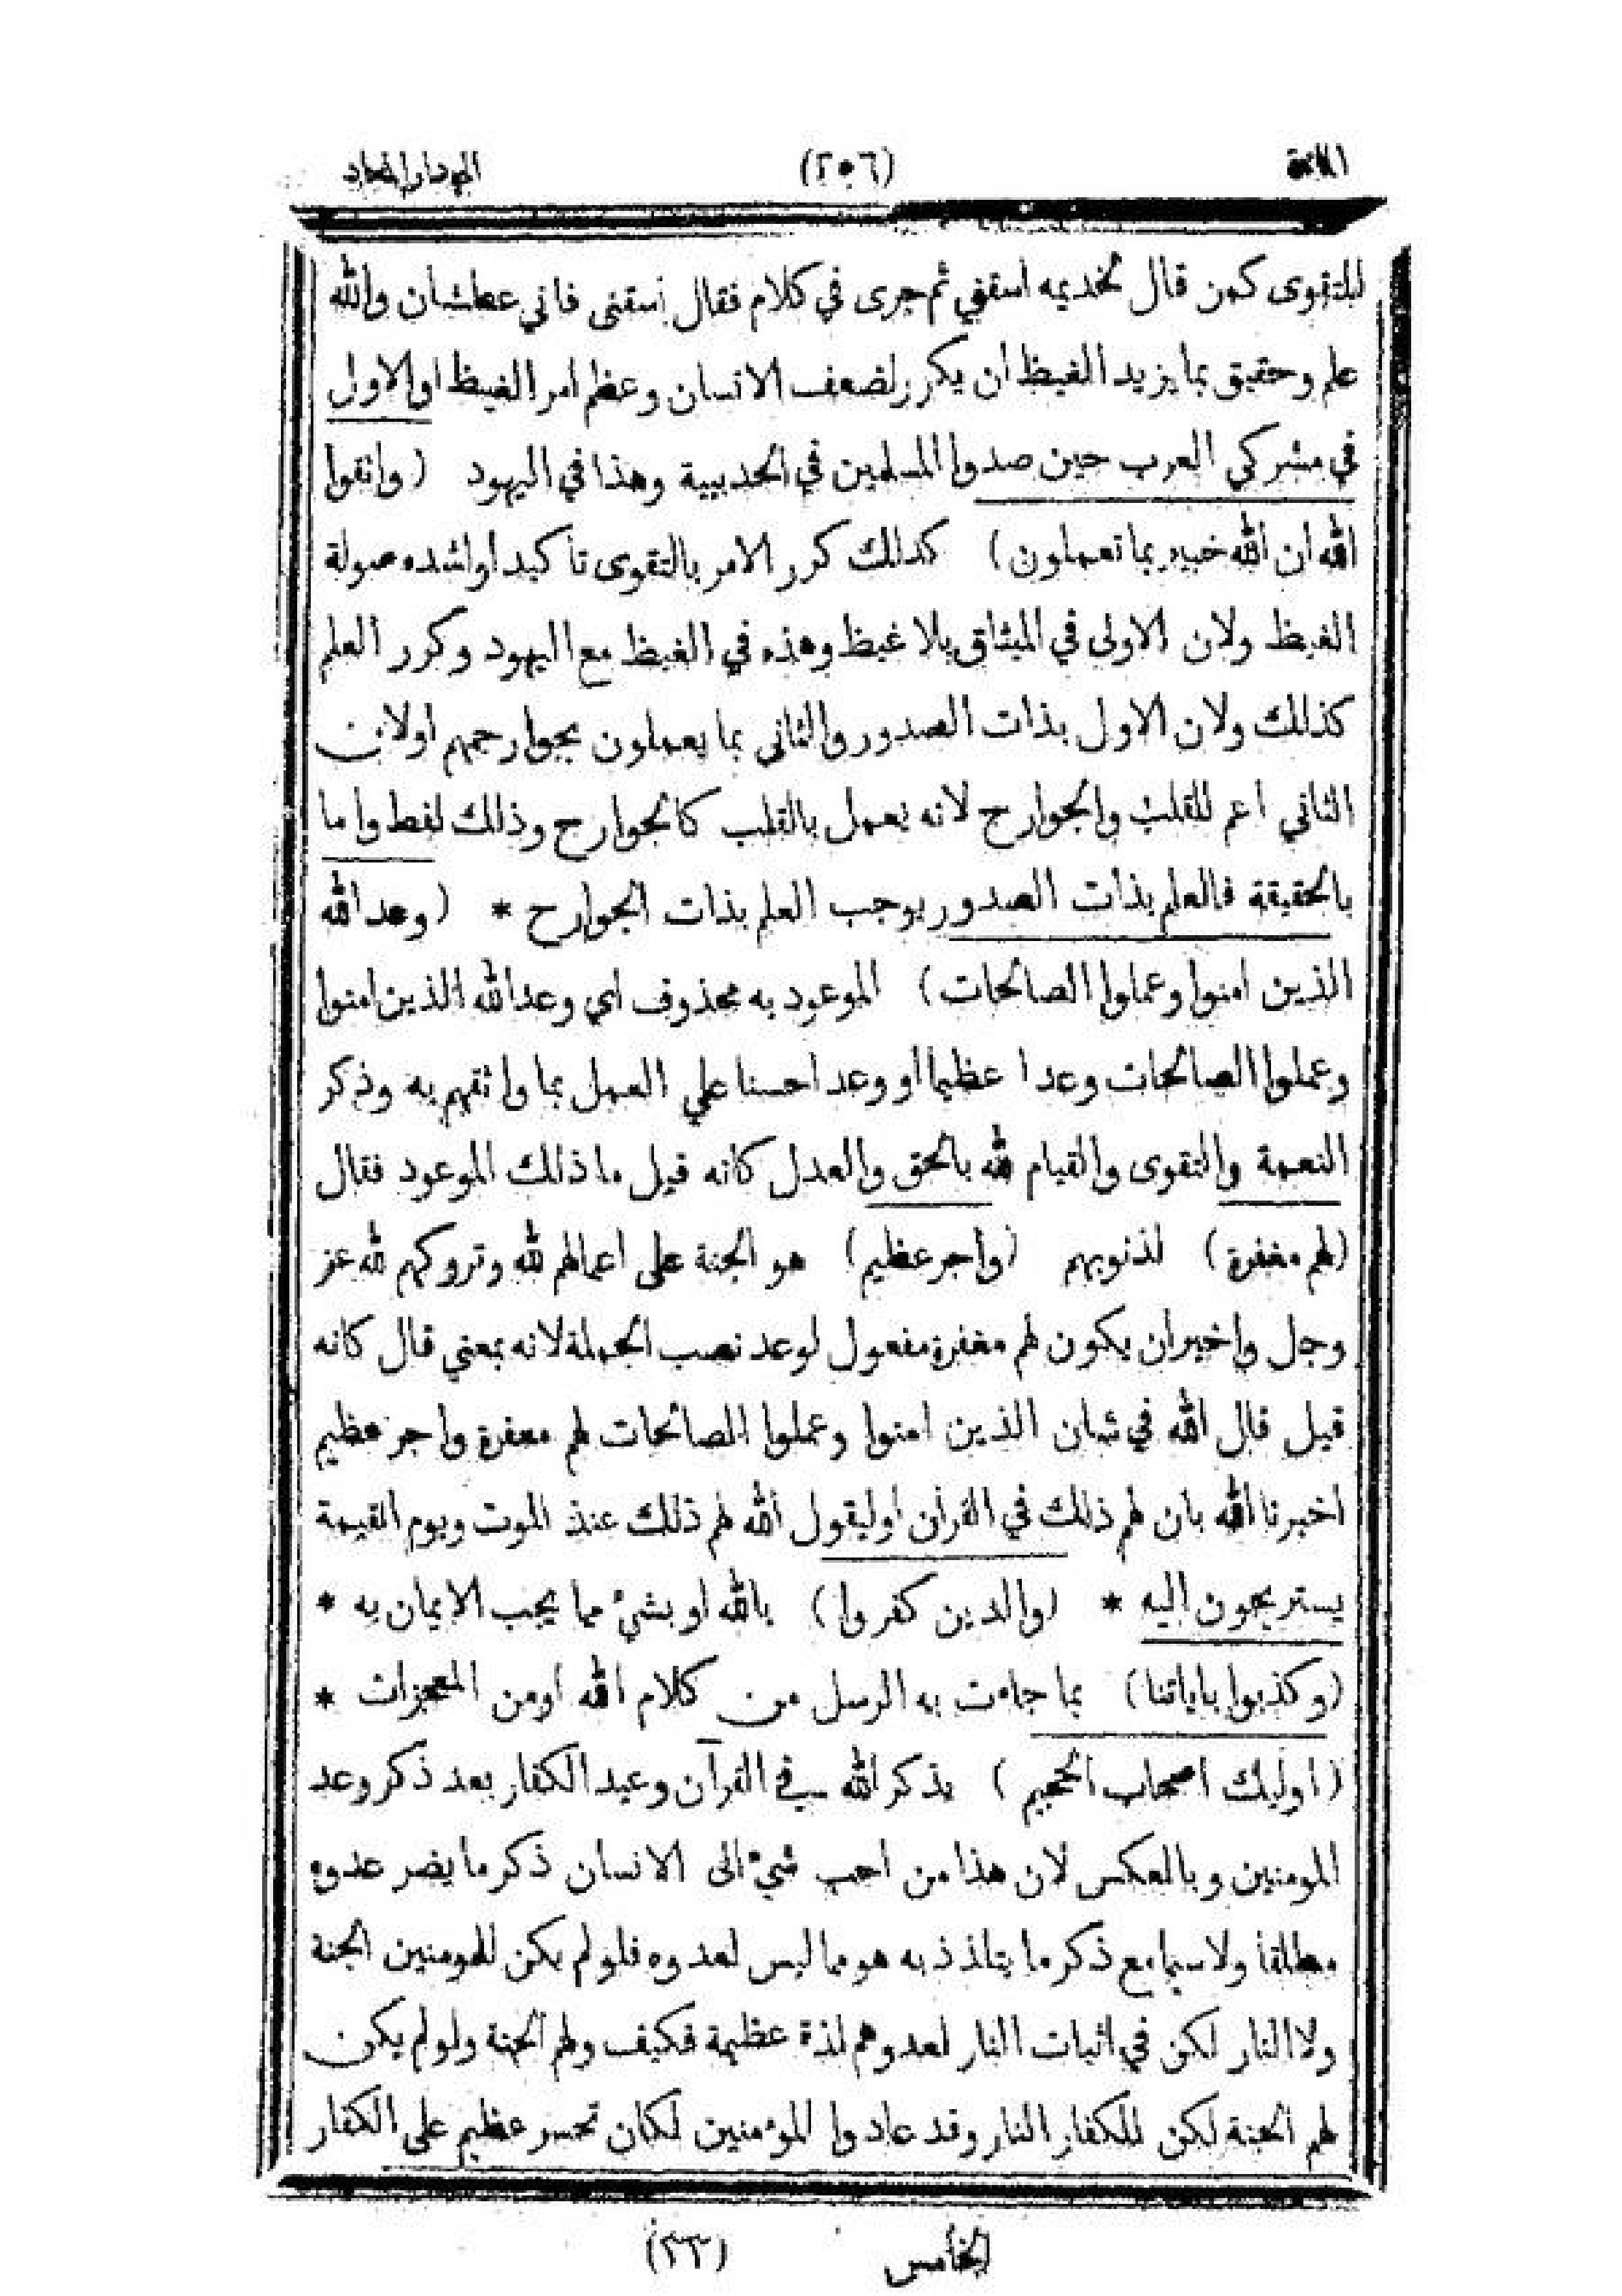 (٢٥٦)
للتقوى كمن قال لخديمه اسقني ثم جرى في كلام فقال اسقنى فاني عطشان والله
علم وحقيق بما يزيد الغيظ ان يكرر لضعف الانسان وعظم امر الغيظ اوالاول
في مشركي العرب حين صدوا المسلمين في الحديبية وهذا في اليهود (واتقوا
الله ان الله خبير بما تعملون) كذلك كرر الامر بالتقوى تأكيدا ولشده صولة
الغيظ ولان الاولى في الميثاق بلا غيظ وهذه في الغيظ مع اليهود وكرر العلم
كذلك ولان الاول بذات الصدور والثاني بما يعملون بجوارحهم اولان
الثاني اعم للقلب والجوارح لانه يعمل بالقلب كالجوارح وذلك لفظ واما
بالحقيقة فالعلم بذات الصدور يوجب العلم بذات الجوارح * (وعد الله
الذين امنوا وعملوا الصالحات) الموعود به محذوف اي وعد الله الذين امنوا
وعملوا الصالحات وعدا عظيما او وعدا حسنا علي العمل بما واثقهم به وذكر
النعمة والتقوى والقيام لله بالحق والعدل كانه قيل ما ذلك الموعود فقال
(لهم مغفرة) لذنوبهم (واجر عظيم) هو الجنة على اعمالهم لله وتروكهم لله عز
وجل واخير ان يكون لهم مغفرة مفعول لوعد نصب الجملة لانه بمعني قال كانه
قيل قال الله في شان الذين امنوا وعملوا الصالحات لهم مغفرة واجر عظيم
اخبرنا الله بان لهم ذلك في القرآن اوليقول الله لهم ذلك عند الموت ويوم القيمة
يستريحون اليه * (والذين كفروا) بالله او بشيء مما يجب الايمان به *
(وكذبوا باياتنا) بما جاءت به الرسل من كلام الله اومن المعجزات *
(اوليك اصحاب الجحيم) يذكر الله في القرآن وعيد الكفار بعد ذكر وعد
المومنين وبالعكس لان هذا من احب شيء الى الانسان ذكر ما يضر عدوه
مطلقا ولا سيما مع ذكر ما يتلذذ به هو مما ليس لعدوه فلو لم يكن للمومنين الجنة
ولا النار لكن في اثبات النار لعدوهم لذة عظيمة فكيف ولهم الجنة ولو لم يكن
لهم الجنة لكن للكفار النار وقد عادوا المؤمنين لكان تحسر عظيم على الكفار
الخامس (٣٣)